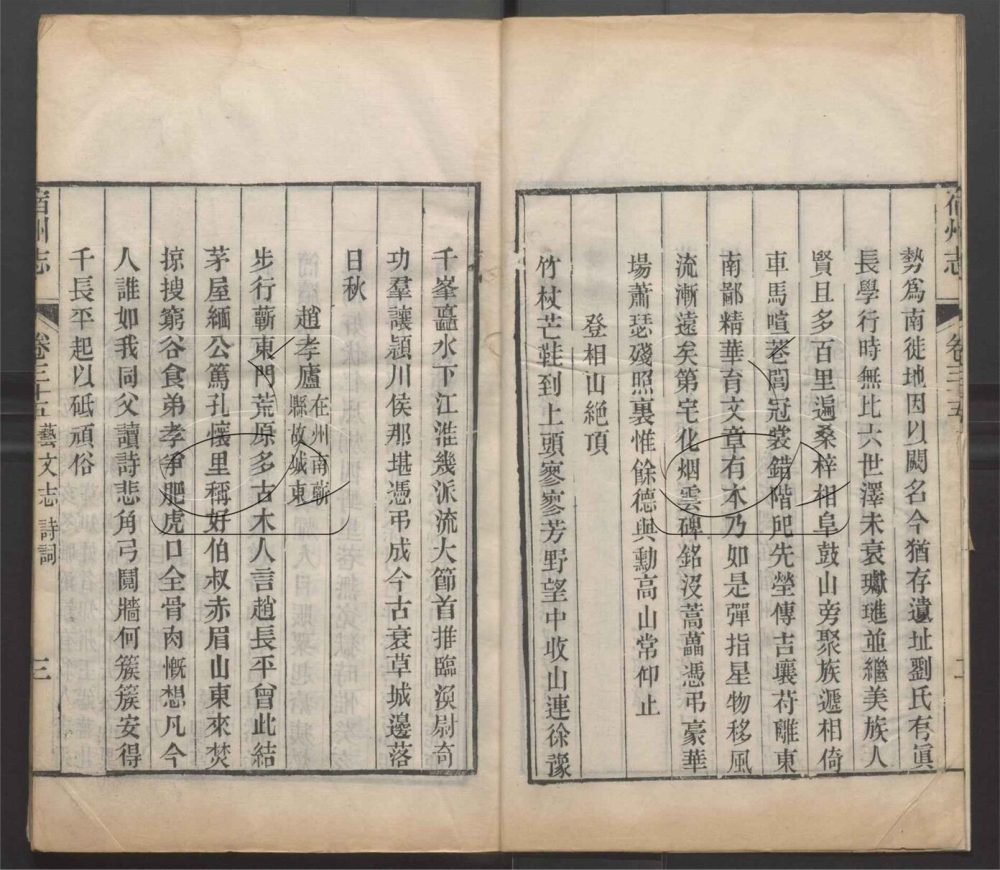 宿州志
卷三十五
二
勢爲南徒地因以閥名今猶存遺址劉氏有眞
長學行時無比六世澤未衰瓛璡並繼美族人
賢且多百里遍桑梓相阜鼓山旁聚族遞相倚
車馬喧巷閭冠裳錯階戺先塋傳吉壤苻離東
南鄙精華育文章有本乃如是彈指星物移風
流漸遠矣第宅化烟雲碑銘沒蒿藟憑弔豪華
場蕭瑟殘照裏惟餘德與勳高山常仰止
登相山絶頂
竹杖芒鞋到上頭寥寥芳野望中收山連徐豫
千峯矗水下江淮幾派流大節首推臨渙尉奇
功羣讓潁川侯那堪憑弔成今古衰草城邊落
日秋
趙孝廬在州南蘄
縣故城東
步行蘄東門荒原多古木人言趙長平曾此結
茅屋緬公篤孔懷里稱好伯叔赤眉山東來焚
掠搜窮谷食弟孝爭肥虎口全骨肉慨想凡今
人誰如我同父讀詩悲角弓鬩牆何簇簇安得
千長平起以砥頑俗
宿州志
卷三十五
藝文志 詩詞
三